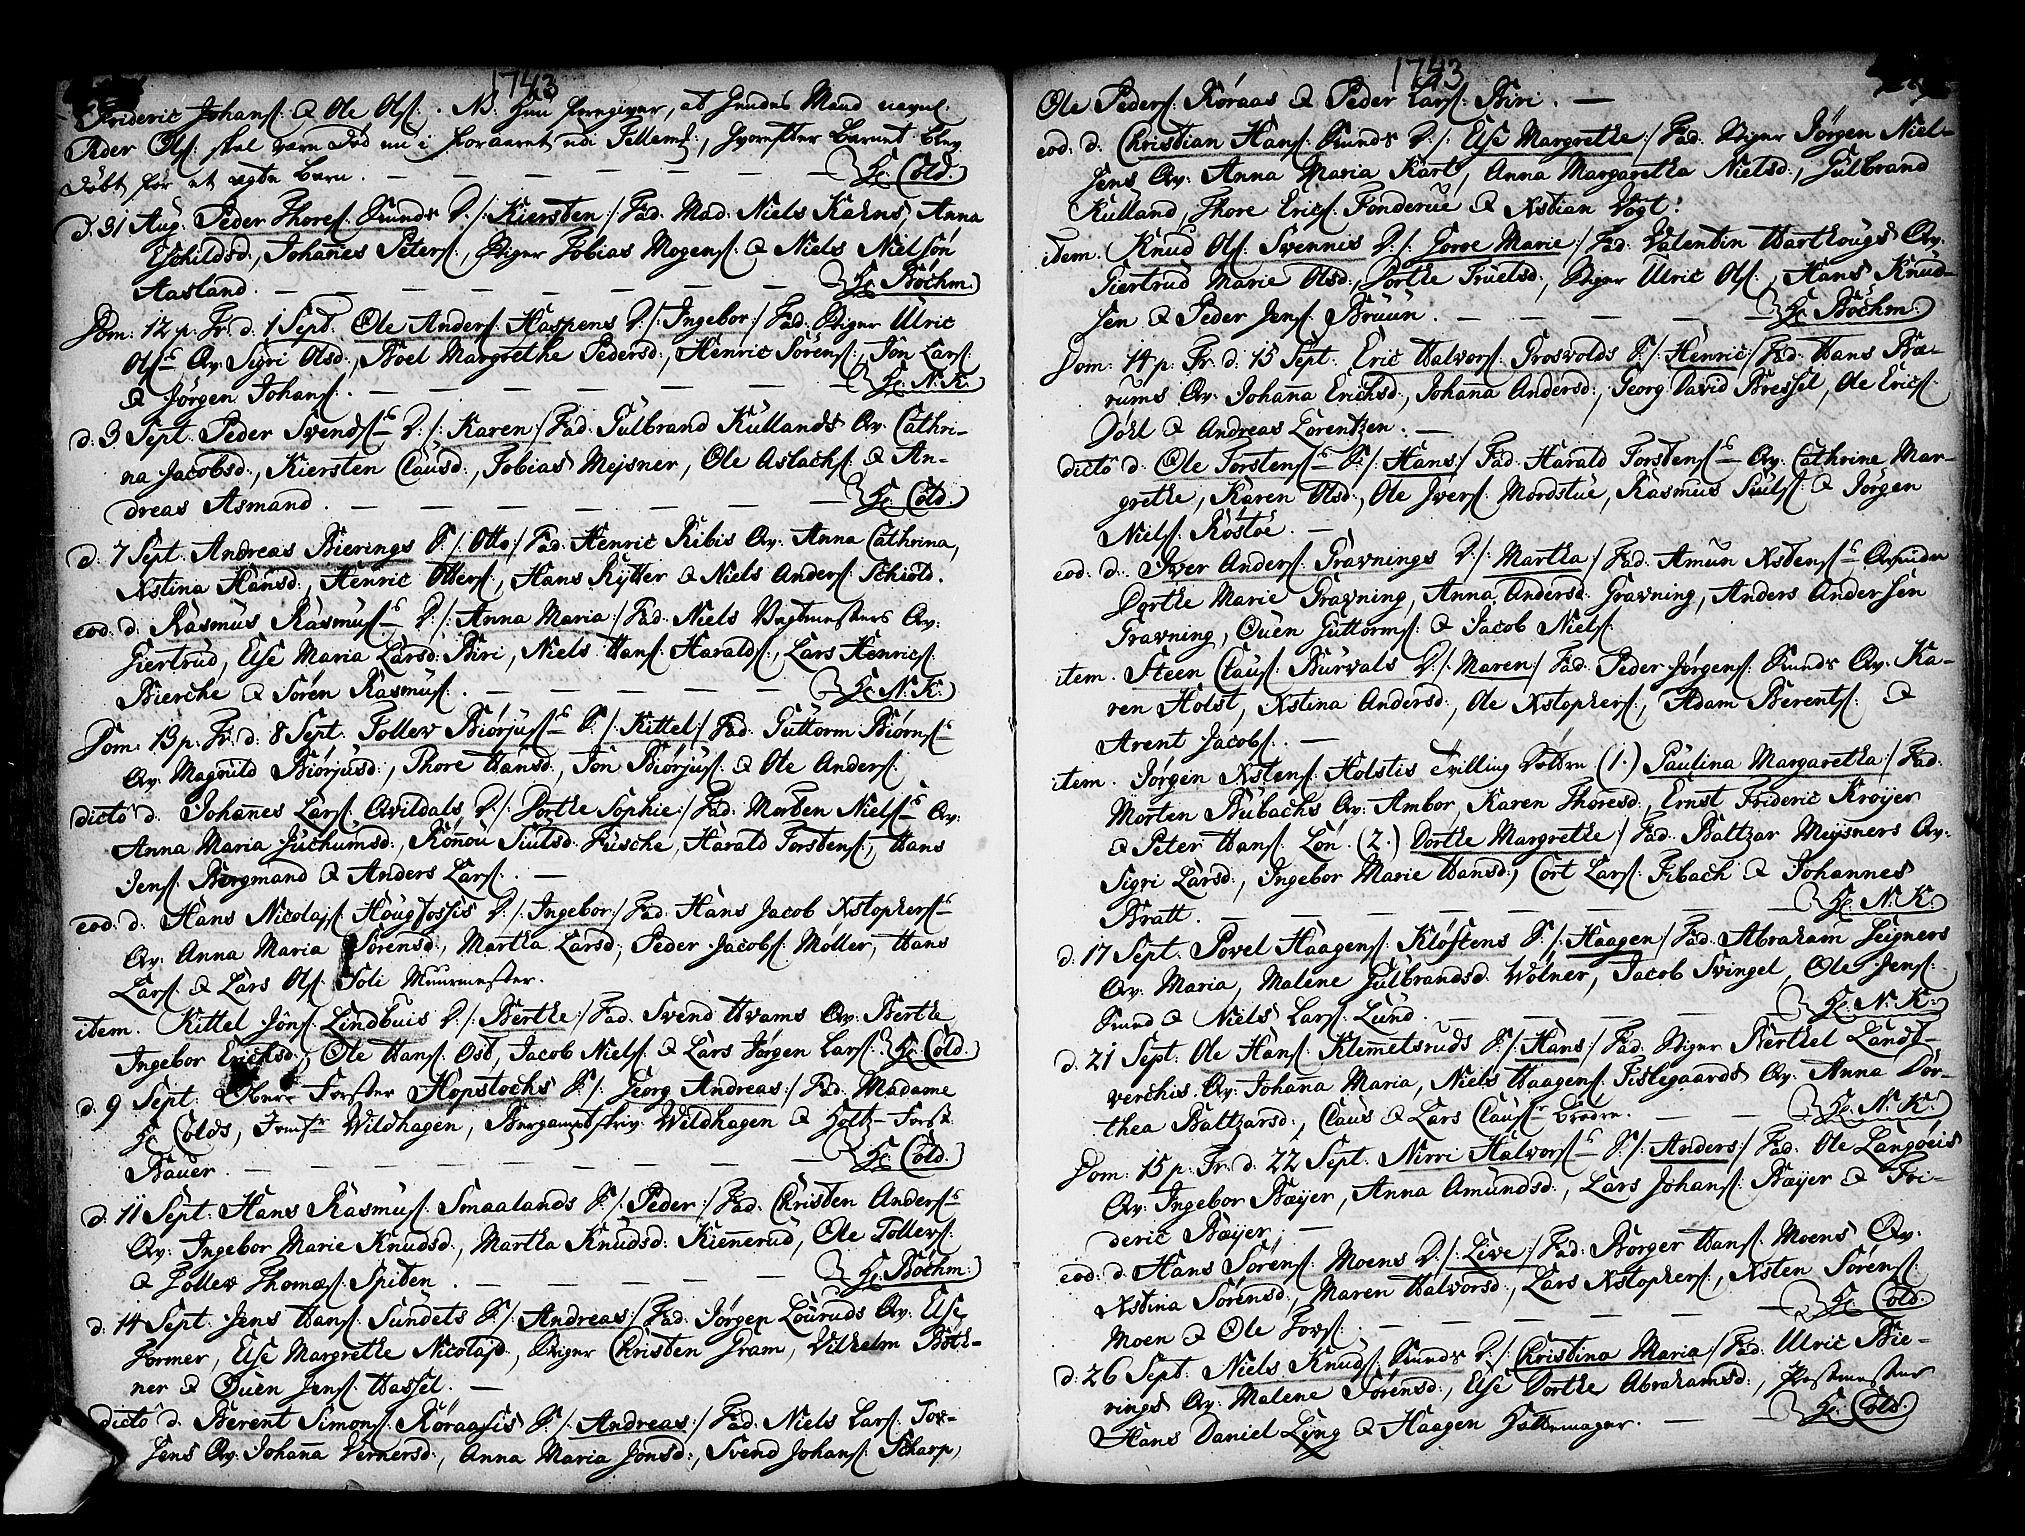 1743
Frideric Johansſ. & Ole Olſ. NB. Hun foregiver, at hendes Mand navnl.
Peder Olſ. skal være død nu i foraaret udi Tellem:, hvorefter barnet blev
døbt for et ægte barn. — — — — — — Hr. Cold.
d. 31 Aug. Peder Thoreſ. Sunds D. /: Kiersten :/ Fad. Mad. Niels Kahns, Anna
Eschildsd:, Johannes Peterſ., Stiger Tobias Mogenſ. & Niels Nielsön
Aasland. — — — — — — — Hr. Böchm.
Dom: 12 p. Tr. d. 1 Sept. Ole Anderſ. Haspens D. /: Ingebor :/ Fad. Stiger Ulric
Olſ. Qv. Sigri Olsd:, Boel Margrethe Pedersd:, Henric Sörenſ., Jon Larſ.
& Jörgen Johanſ. — — — — — — Hr. N. K.
d. 3 Sept. Peder Svendſ. D. /: Karen :/ Fad. Gulbrand Kullands Qv. Cathri-
na Jacobsd:, Kiersten Clausd:, Tobias Mejsner, Ole Aslachſ. & An-
dreas Asmand. — — — — — — — Hr. Cold.
d. 7 Sept. Andreas Bierings S. /: Otto :/ Fad. Henric Kibis Qv. Anna Cathrina,
Xstina Hansd:, Henric Otterſ., Hans Rytter & Niels Anderſ. Schiold.
eod. d. Rasmus Rasmuſ. D. /: Anna Maria :/ Fad. Niels Vagtmesters Qv.
Giertrud, Else Maria Larsd. Biri, Niels Hanſ. Haraldſ., Lars Henricſ.
Bierche & Sören Rasmuſ. — — — — — Hr. N. K.
Dom: 13 p. Tr. d. 8 Sept. Tollev Biörjuſ. S. /: Kittel :/ Fad. Guttorm Biörnſ.
Qv. Magnild Biörjusd:, Thore Hansd:, Jon Biörjuſ. & Ole Anderſ.
dicto d. Johannes Larſ. Qvildals D. /: Dorthe Sophie :/ Fad. Morten Nielſ. Qv.
Anna Maria Juchumsd:, Rönnou Siulsd. Fusche, Harald Torstenſ., Hans
Jenſ. Bergmand & Anders Larſ. —
eod. d. Hans Nicolajſ. Hougfossis D. /: Ingebor :/ Fad. Hans Jacob Xstopherſ.
Qv. Anna Maria Sörensd:, Martha Larsd:, Peder Jacobſ. Möller, Hans
Larſ. & Lars Olſ. Foli Muurmester.
item. Kittel Jönſ. Lindbuis D. /: Berthe :/ Fad. Svend Hvams Qv. Berthe
Ingebor Erichsd:, Ole Hanſ. Ost, Jacob Nielſ. & Lars Jörgen Larſ. Hr. Cold.
d. 9 Sept. Ober Forster Hopstochs S. /: Georg Andreas :/ Fad. Madame
Hr. Colds, Jomfr. Wildhagen, Bergamptskriv. Wildhagen & Holtz-Forst.
Bauer. — — — — — — — Hr. Cold.
d. 11 Sept. Hans Rasmuſ. Smaalands S. /: Peder :/ Fad. Christen Anderſ.
Qv. Ingebor Marie Knudsd:, Martha Knudsd. Kiennerud, Ole Tollevſ.
& Tollev Thomæſ. Spiten. — — — — Hr. Böchm.
d. 14 Sept. Jens Hanſ. Sundets S. /: Andreas :/ Fad. Jörgen Louruds Qv. Else
Former, Else Margrethe Nicolajd:, Stiger Christen Gram, Vilhelm Böch-
ner & Ouen Jenſ. Hassel. —
dicto d. Berent Simonſ. Köraasis S. /: Andreas :/ Fad. Niels Larſ. Tor-
sens Qv. Johanna Vernersd:, Anna Maria Jonsd:, Svend Johanſ. Scharp,
1743
Ole Pederſ. Köraas & Peder Larſ. Biri. —
eod. d. Christian Hanſ. Sunds D. /: Else Margrethe :/ Fad. Stiger Jörgen Niel-
sens Qv. Anna Maria Kart, Anna Margaretha Nielsd:, Gulbrand
Kulland, Thore Ericſ. Fonderue & Xstian Vogt.
item. Knud Olſ. Svennis D. /: Torve Marie :/ Fad. Valentin Harthougs Qv.
Giertrud Marie Olsd:, Dorthe Truelsd:, Stiger Ulric Olſ., Hans Knud-
sen & Peder Jenſ. Bruun. — — — — — Hr. Böchm.
Dom: 14 p. Tr. d. 15 Sept. Eric Halvorſ. Trosvolds S. /: Henric :/ Fad. Hans Bæ-
rums Qv. Johanna Erichsd:, Johanna Andersd:, Georg David Bressel, Ole Ericſ.
Döhl & Andreas Lorentzen. —
dicto d. Ole Torstenſ. S. /: Hans :/ Fad. Harald Torstenſ. Qv. Cathrine Mar-
grethe, Karen Olsd:, Ole Iverſ. Mordstue, Rasmus Siulſ. & Jörgen
Nielſ. Röstöe. —
eod. d. Iver Anderſ. Gravnings D. /: Martha :/ Fad. Amun Xstenſ. Qvinde
Dorthe Marie Gravning, Anna Andersd. Gravning, Anders Andersen
Gravning, Ouen Guttormſ. & Jacob Nielſ.
item. Steen Clauſ. Burvals D. /: Maren :/ Fad. Peder Jörgenſ. Sunds Qv. Ka-
ren Holst, Xstina Andersd:, Ole Xstopherſ., Adam Berentſ. &
Arent Jacobſ. —
item. Jörgen Xstenſ. Holstis Tvilling Döttre (1.) Paulina Margaretha :/ Fad.
Morten Bubachs Qv. Ambor, Karen Thoresd:, Ernst Frideric Kroyer
& Peter Hanſ. Lön. (2.) Dorthe Margrethe :/ Fad. Baltzar Meysners Qv.
Sigri Larsd:, Ingebor Marie Hansd:, Cort Larſ. Fibach & Johannes
Bratt. — — — — — — — Hr. N. K.
d. 17 Sept. Povel Haagenſ. Klöftens S. /: Haagen :/ Fad. Abraham Seigners
Qv. Maria, Malene Gulbrandsd. Wolner, Jacob Svingel, Ole Jenſ.
Sund & Niels Larſ. Lund. — — — Hr. N. K.
d. 21 Sept. Ole Hanſ. Klemetsruds S. /: Hans :/ Fad. Stiger Berthel Landt-
verchis Qv. Johanna Maria, Niels Haagenſ. Fislegaards Qv. Anna Dor-
thea Baltzarsd:, Claus & Lars Clauſ. Brödre. — — Hr. N. K.
Dom: 15 p. Tr. d. 22 Sept. Nirri Halvorſ. S. /: Anders :/ Fad. Ole Langöeis
Qv. Ingebor Bæyer, Anna Amundsd:, Lars Johanſ. Bæyer & Fri-
deric Bæyer. —
eod. d. Hans Sörenſ. Moens D. /: Live :/ Fad. Borger Hanſ. Moens Qv.
Xstina Sörensd:, Maren Halvorsd:, Lars Xstopherſ., Xsten Sörenſ.
Moen & Ole Torſ. — — — — — Hr. Cold.
d. 26 Sept. Niels Knudſ. Sunds D. /: Christina Maria :/ Fad. Ulric Bie-
rings Qv. Malene Sörensd:, Else Dorthe Abrahamsd:, Postmester
Hans Daniel Lyng & Haagen Hattemager. — — Hr. Cold.